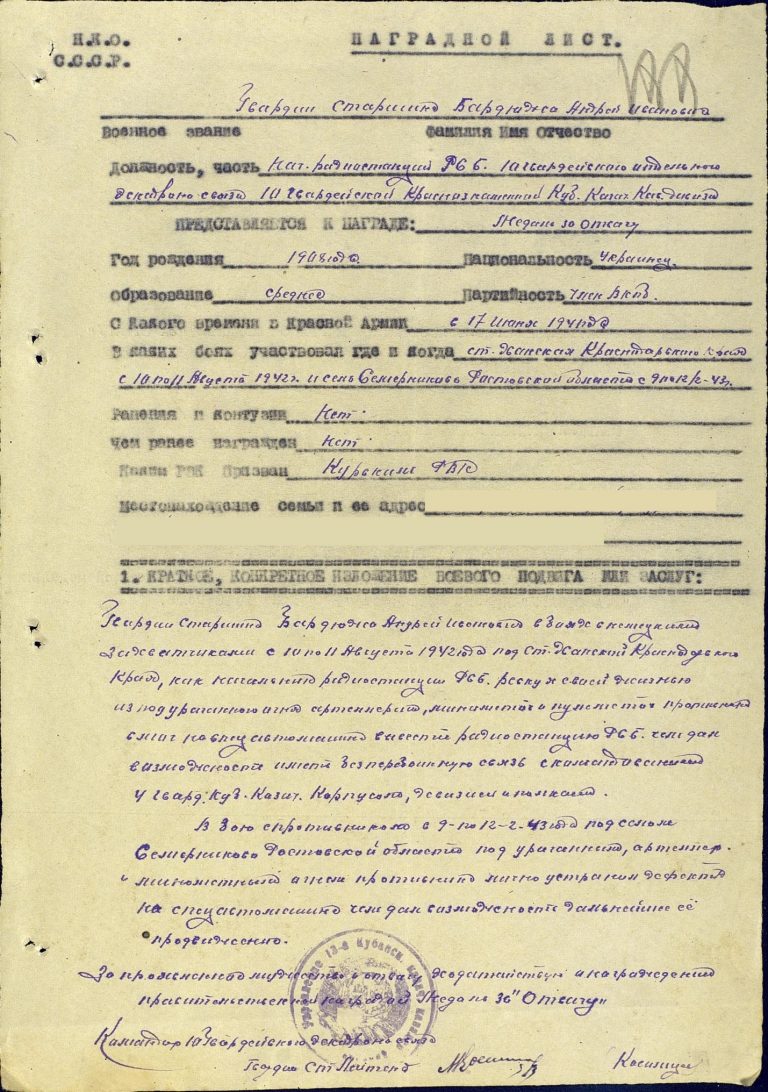 Н.К.О. НАГРАДНОЙ ЛИСТ.
С.С.С.Р.
Гвардии Старшина Бардюджа Андрей Иванович
Военное звание Фамилия Имя Отчество
Должность, часть Нач. радиостанции РББ. 10 гвардейского отдельного
10 Гвардейской Краснознаменной Куб. Казач. Кав. дивизии
ПРЕДСТАВЛЯЕТСЯ К НАГРАДЕ: Медаль за Отвагу
Год рождения 1908 года Национальность Украинец
Образование среднее Партийность член ВКПб.
С какого времени в Красной Армии с 17 Июня 1941 года
В каких боях участвовал где и когда ст. Хванская Краснодарского Края
с 10 по 11 Августа 1942 г. и село Семерниково Ростовской области с 9 по 12/2-43 г.
Ранения и контузии Нет.
Чем ранее награжден Нет.
Каким РВК Призван РВК
Местонахождение семьи и ее адрес
1. КРАТКОЕ, КОНКРЕТНОЕ ИЗЛОЖЕНИЕ БОЕВОГО ПОДВИГА ИЛИ ЗАСЛУГ:
Гвардии Старшина Бардюджа Андрей Иванович в боях с немецкими
захватчиками с 10 по 11 Августа 1942 года под ст. Хванской Краснодарского
Края, как начальник радиостанции РББ. рискуя своей жизнью
из под ураганного огня артиллерии, минометов и пулеметов противника
смог на спецавтомашине вывести радиостанцию РББ. чем дал
возможность иметь безперебойную связь с командованием
4 Гвард. Куб. Казач. Корпусом, дивизией и полками.
В бою с противником с 9-по 12-2-43 года под селом
Семерниково Ростовской области под ураганным, артиллер.
и минометным огнем противника лично устранил дефекты
на спецавтомашине чем дал возможность дальнейшее её
продвижению.
За проявленное мужество и отвагу ходатайствую о награждении
правительственной наградой Медаль за "Отвагу"
Командир 10 Гвардейского связи
Гвардии Ст. Лейтенант